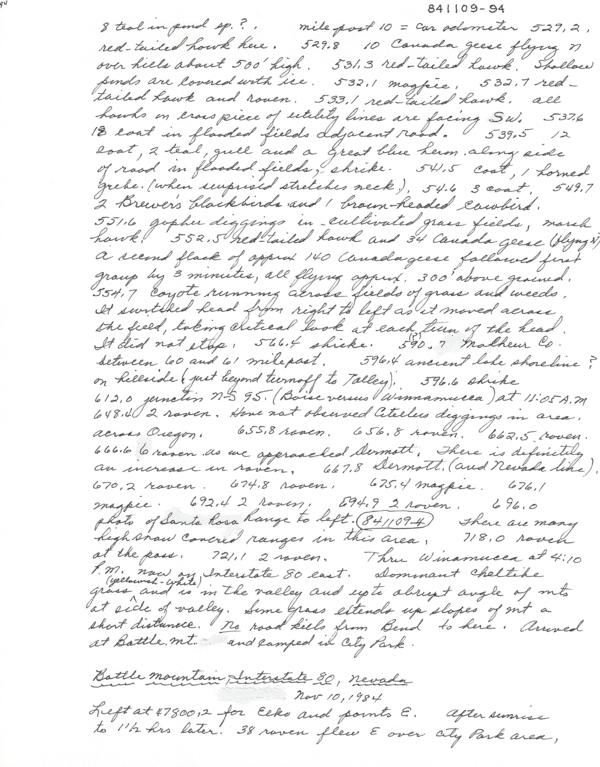 841109-94
8 teal in pond sp.?. mile post 10 = car odometer 529.2.
red-tailed hawk here. 529.8 10 Canada geese flying N
over hills about 500' high. 531.3 red-tailed hawk. Shallow
ponds are covered with ice. 532.1 magpie. 532.7 red-
tailed hawk and raven. 533.1 red-tailed hawk. all
hawks on cross piece of utility lines are facing SW. 537.6
18 coot in flooded fields adjacent road. 539.5 12
coot, 2 teal, gull and a great blue heron along side
of road in flooded fields, shrike. 541.5 coot, 1 horned
grebe. (when surprised stretches neck). 54.6 3 coot, 549.7
2 Brewer's blackbirds and 1 brown-headed cowbird.
551.6 gopher diggings in cultivated grass fields, marsh
hawk. 552.5 red-tailed hawk and 34 Canada geese (flying N)
A second flock of approx 140 Canada geese followed first
group by 3 minutes, all flying approx. 300' above ground.
554.7 coyote running across fields of grass and weeds.
It switched head from right to left as it moved across
the field, taking critical look at each turn of the head.
It did not stop. 566.4 shrike. 590.7 Malheur Co.
between 60 and 61 milepost. 596.4 ancient lake shoreline?
on hillside (just beyond turnoff to Talley). 596.6 shrike
612.0 junction N-S 95. (Boise versus Winnamucca) at 11:05 A.M
648.4 2 raven. Have not observed Citellus diggings in area
across Oregon. 655.8 raven. 656.8 raven. 662.5 raven.
666.6 6 raven as we approached Dermott. There is definitely
an increase in raven. 667.8 Dermott. (and Nevada line).
670.2 raven. 674.8 raven. 675.4 magpie. 676.1
magpie. 692.4 2 raven. 694.9 2 raven. 696.0
photo of Santa Rosa Range to left. (841109-4) There are many
high snow covered ranges in this area. 718.0 raven
at the pass. 721.1 2 raven. Thru Winamucca at 4:10
P.M. now on Interstate 80 east. Dominant cheltike
(yellowish-white)
grass and is in the valley and up to abrupt angle of mts
at side of valley. Some grass extends up slopes of mt a
short distance. No road kills from Bend to here. Arrived
at Battle Mt. and camped in City Park.
Battle Mountain, Interstate 80, Nevada
Nov 10, 1984
Left at 47800.2 for Elko and points E. After sunrise
to 1½ hrs later. 38 raven flew E over City Park area,